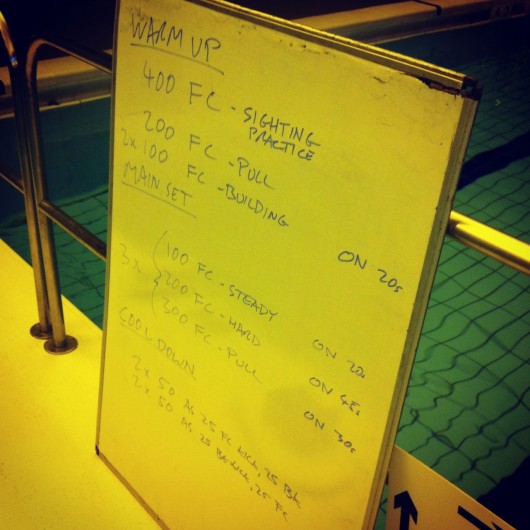 WARM UP
400 FC - SIGHTING
PRACTICE
200 FC - PULL
2x100 FC - BUILDING ON 20s
MAIN SET
100 FC - STEADY ON 20s
3x 200 FC - HARD ON 45s
300 FC - PULL ON 30s
COOL DOWN
2x 50 AS 25 FC KICK, 25 BK
2x 50 AS 25 BK KICK, 25 FC